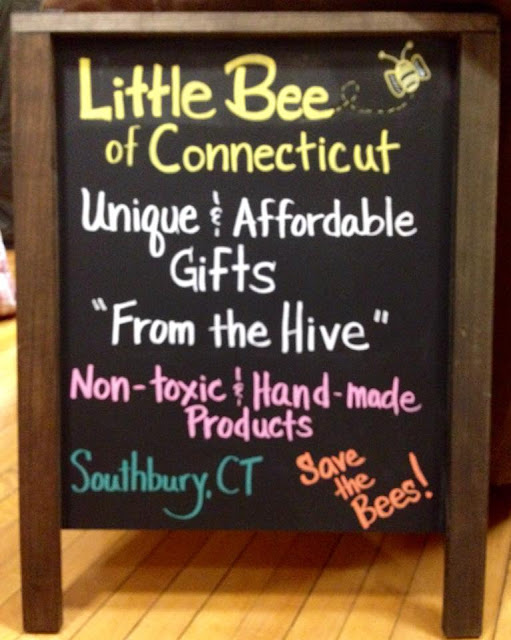 Little Bee
of Connecticut
Unique & Affordable
Gifts
"From the Hive"
Non-toxic & Hand-made
Products
Southbury, CT
Save
the
Bees!